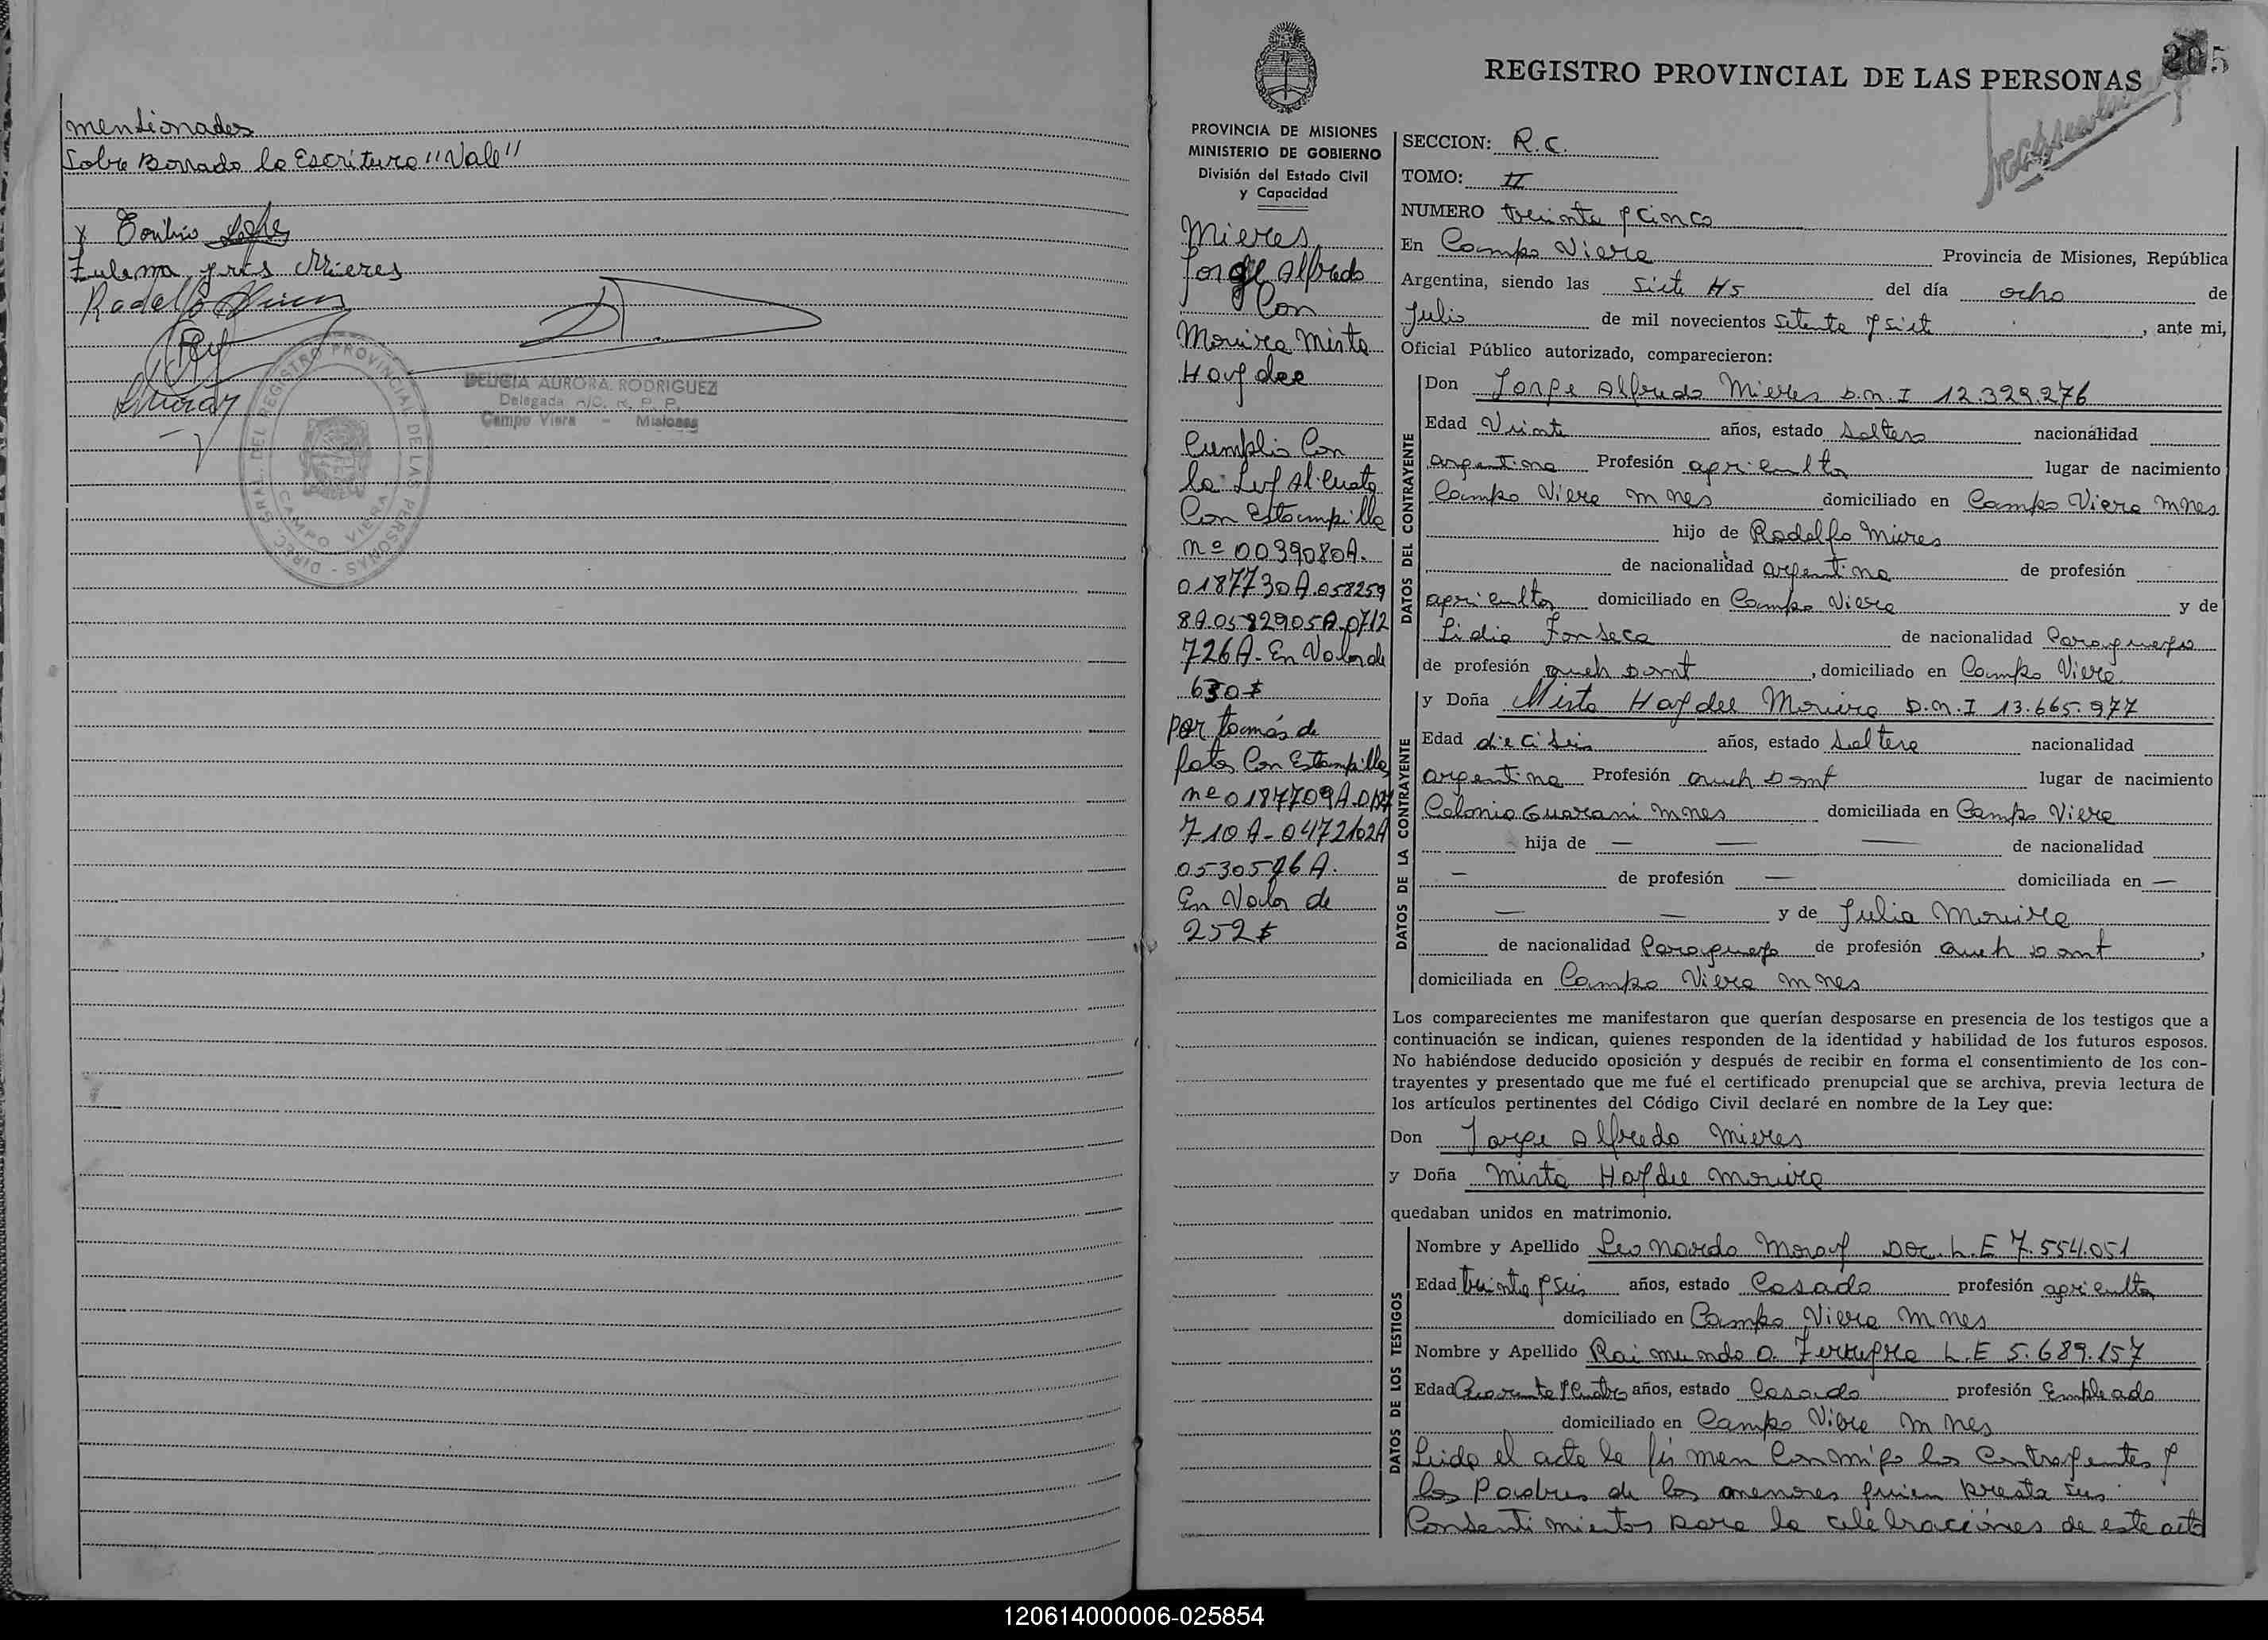 mencionados
Sobre Borrado la Escritura "Vale"
Zulema Mieres
Rodolfo
DELICIA AURORA RODRIGUEZ
Delegada A/C. R. P. P.
Campo Viera - Misiones
DIREC. GRAL. DEL REGISTRO PROVINCIAL DE LAS PERSONAS
CAMPO VIERA
205
REGISTRO PROVINCIAL DE LAS PERSONAS
PROVINCIA DE MISIONES
MINISTERIO DE GOBIERNO
División del Estado Civil
y Capacidad
Mieres
Jorge Alfredo
Con
Moreira Mirta
Haydee
Cumplio Con
la Ley Alicuota
Con Estampilla
nº 0039080A.
0187730A.058259
8A0582905A.0712
726A- En Valor de
630$
por tomás de
fotos Con Estampilla
nº 0187709A.
710A-0472102A
En Valor de
252$
SECCION: R.C.
TOMO: II
NUMERO treinta y Cinco
En Campo Viera Provincia de Misiones, República
Argentina, siendo las Siete Hs del día ocho de
Julio de mil novecientos Setenta y Siete, ante mi,
Oficial Público autorizado, comparecieron:
DATOS DEL CONTRAYENTE
Don Jorge Alfredo Mieres D.N.I 12.329.276
Edad Veinte años, estado Soltero nacionalidad
argentina Profesión agricultor lugar de nacimiento
Campo Viera Mnes domiciliado en Campo Viera Mnes
hijo de Rodolfo Mieres
de nacionalidad argentina de profesión
agricultor domiciliado en Campo Viera y de
Lidia Fonseca de nacionalidad Paraguaya
de profesión queh Domt, domiciliado en Campo Viera
DATOS DE LA CONTRAYENTE
y Doña Mirta Haydee Moreira D.N.I 13.665.977
Edad dieciseis años, estado Soltera nacionalidad
argentina Profesión queh Domt lugar de nacimiento
Colonia Guarani Mnes domiciliada en Campo Viera
hija de — — — de nacionalidad
— de profesión — domiciliada en —
— — y de Julia Moreira
de nacionalidad Paraguaya de profesión queh Domt,
domiciliada en Campo Viera Mnes
Los comparecientes me manifestaron que querían desposarse en presencia de los testigos que a
continuación se indican, quienes responden de la identidad y habilidad de los futuros esposos.
No habiéndose deducido oposición y después de recibir en forma el consentimiento de los con-
trayentes y presentado que me fué el certificado prenupcial que se archiva, previa lectura de
los artículos pertinentes del Código Civil declaré en nombre de la Ley que:
Don Jorge Alfredo Mieres
y Doña Mirta Haydee Moreira
quedaban unidos en matrimonio.
DATOS DE LOS TESTIGOS
Nombre y Apellido Leonardo Moray Doc. L.E 7.554.051
Edad treinta y Seis años, estado Casado profesión agricultor
domiciliado en Campo Viera Mnes
Nombre y Apellido Raimundo O. Ferreyra L.E 5.689.157
Edad Cuarenta y Cuatro años, estado Casado profesión Empleado
domiciliado en Campo Viera Mnes
Leida el acta la firman Conmigo los Contrayentes y
los Padres de los menores quien presta sus
Consentimientos para la celebraciones de este acto
120614000006-025854